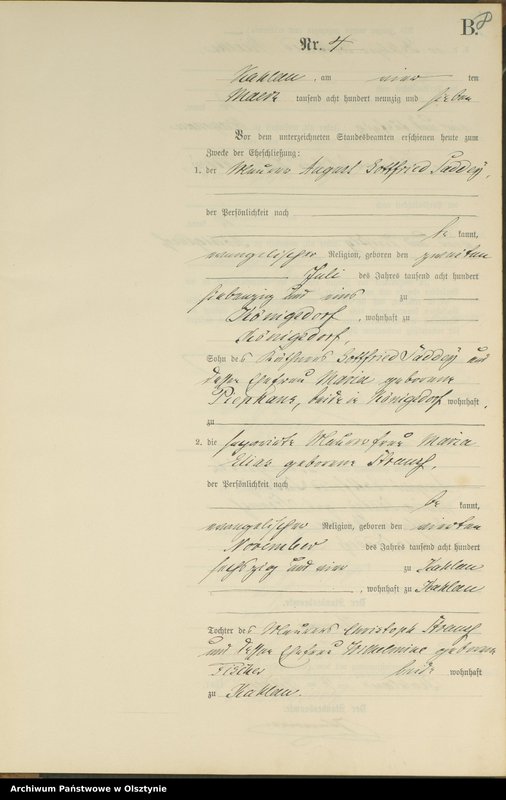 B.
Nr. 4
Kahlau, am vier ten
Maerz tausend acht hundert neunzig und sieben
Vor dem unterzeichneten Standesbeamten erschienen heute zum
Zwecke der Eheschließung:
1. der Maurer August Gottfried Taddey,
der Persönlichkeit nach
be kannt,
evangelischer Religion, geboren den zweiten
Juli des Jahres tausend acht hundert
siebenzig und eins zu
Königsdorf, wohnhaft zu
Königsdorf,
Sohn des Käthners Gottfried Taddey und
dessen Ehefrau Maria geborene
beide in Königsdorf wohnhaft,
zu
2. die separirte Maurerfrau Maria
Elias geborene
der Persönlichkeit nach
be kannt,
evangelischer Religion, geboren den vierten
November des Jahres tausend acht hundert
sechszig und vier zu Kahlau
, wohnhaft zu Kahlau
Tochter des Maurers Christoph
und dessen Ehefrau Wilhelmine geborene
Fischer beide wohnhaft
zu Kahlau.
Archiwum Państwowe w Olsztynie